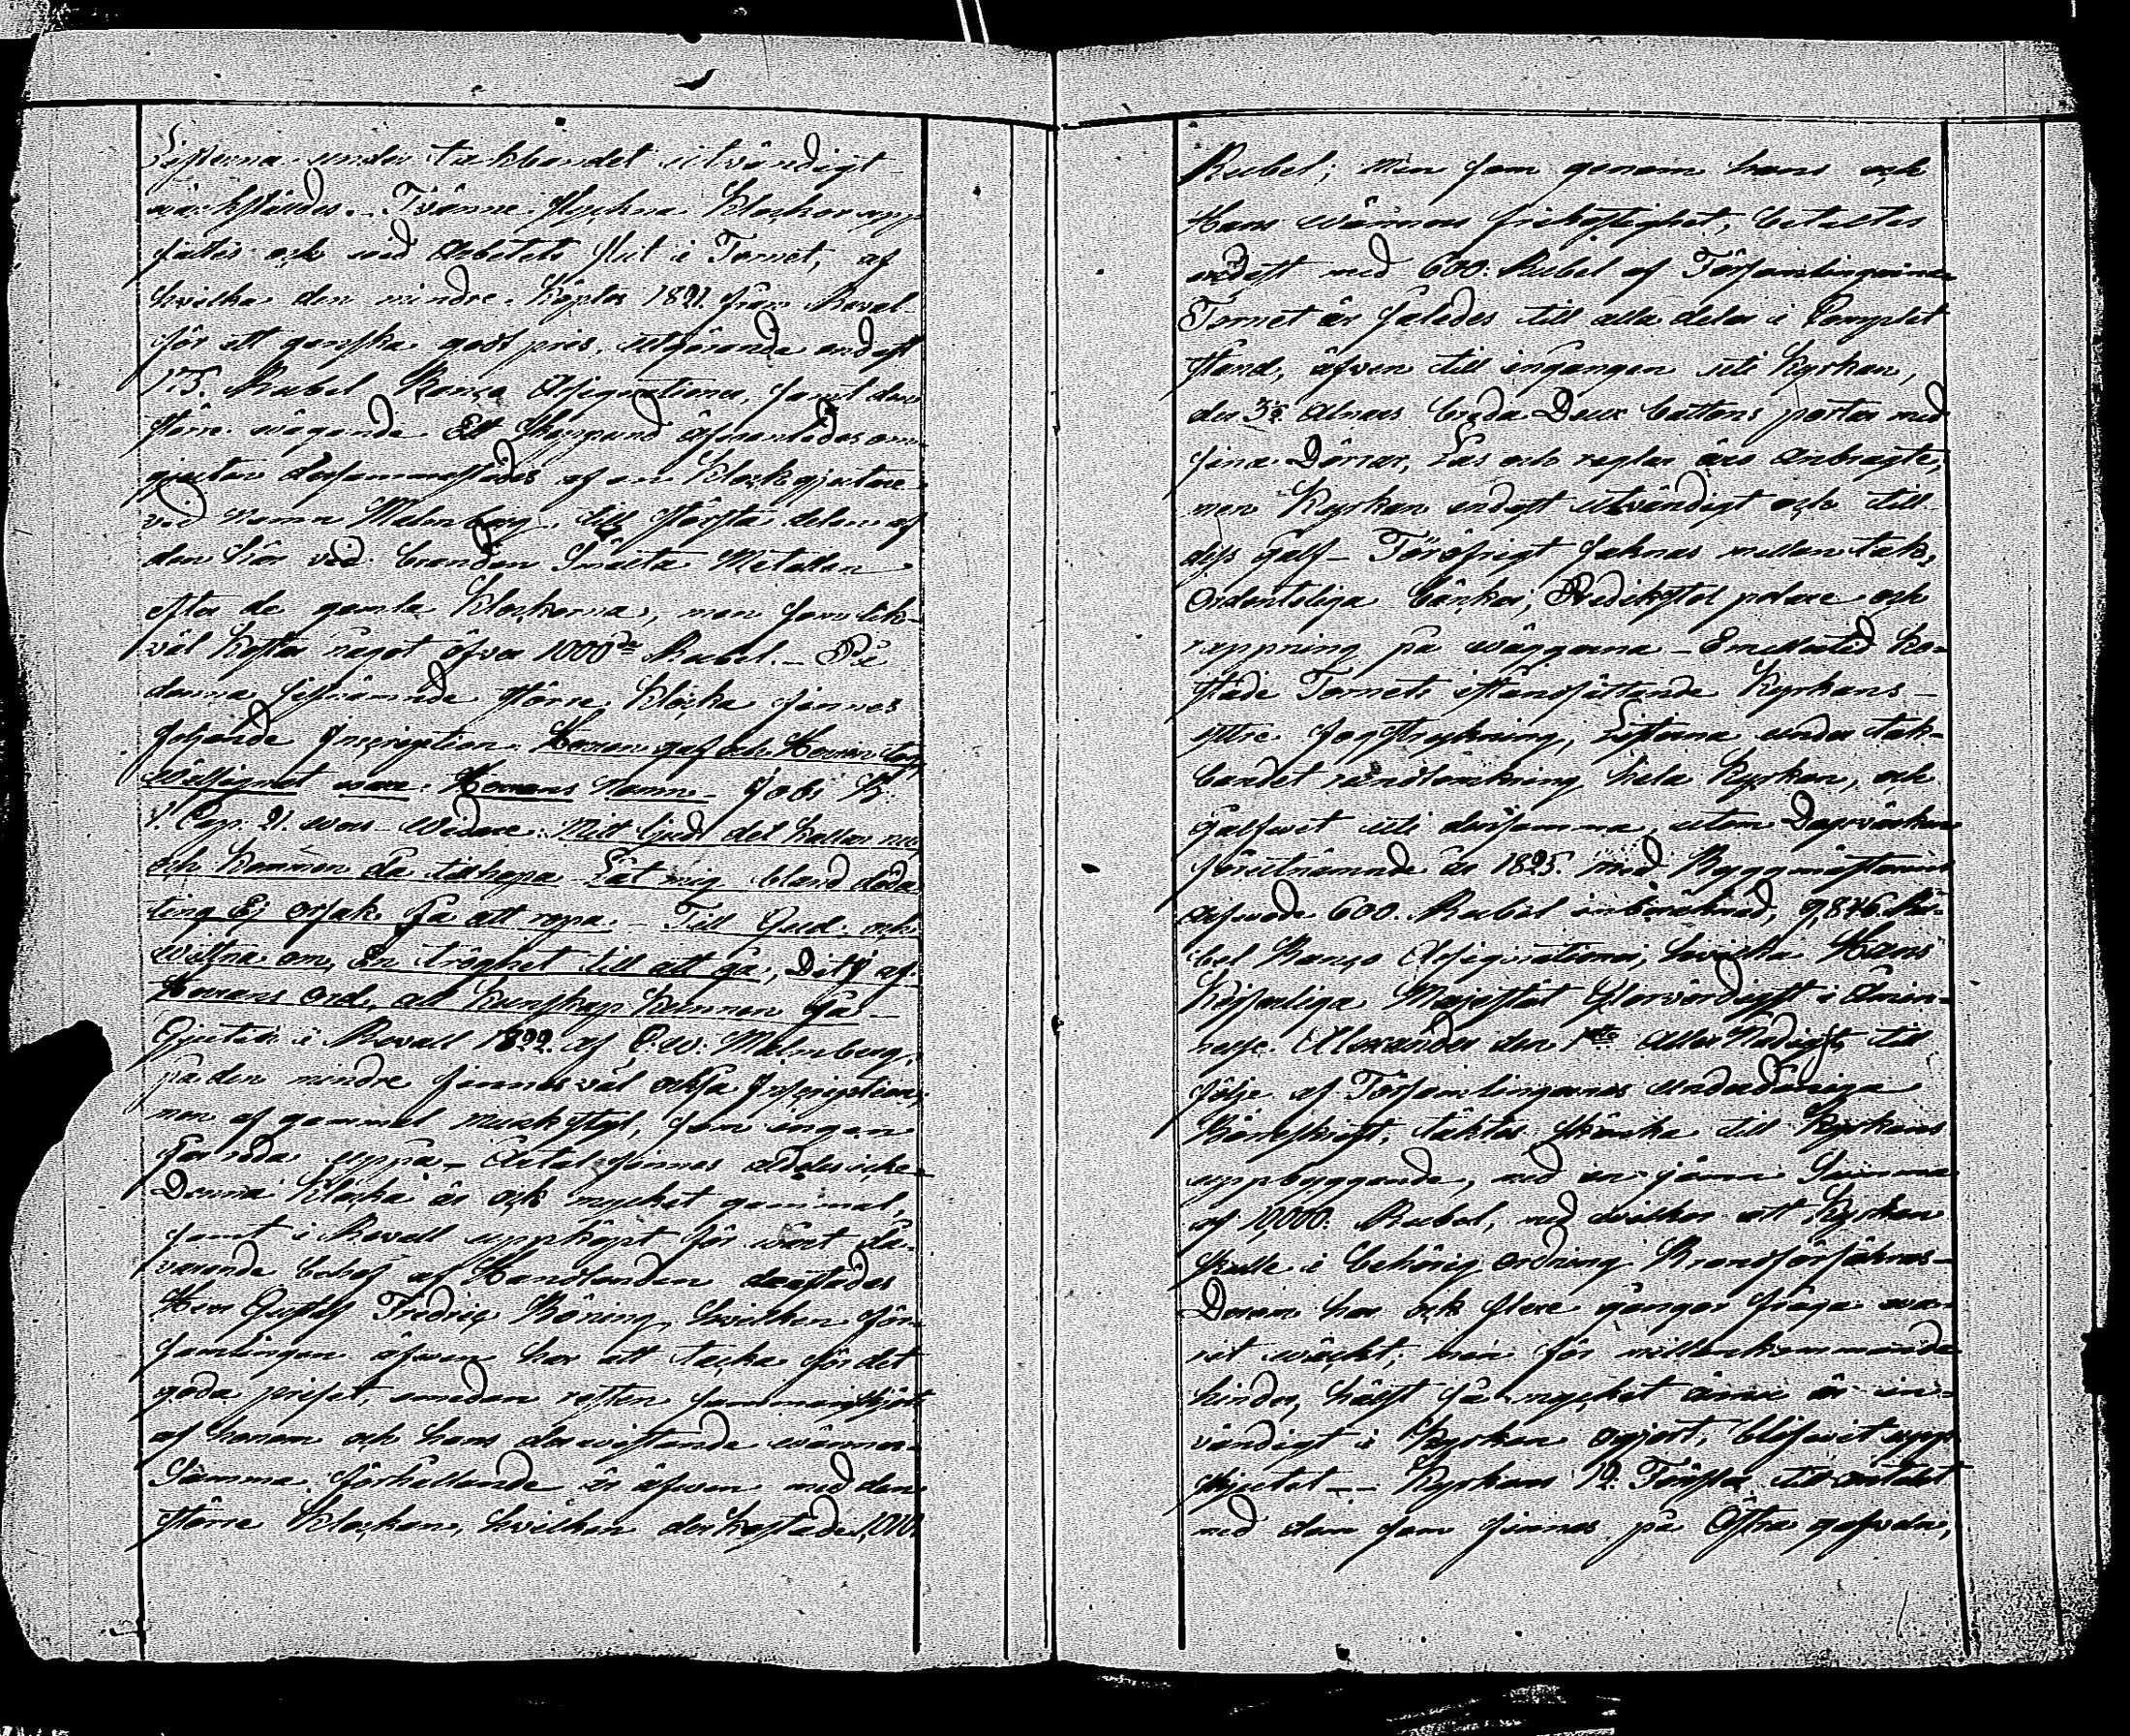 Listerna under takbandet utvändigt
värkställdes. Tvänne stycken Klockor upp
sattes ock vid Arbetets slut i Tornet, af
hvilka den mindre köptes 1821 från Reval
för ett ganska godt pris, utgörande endast
175. Rubel Banco Assignationer, samt den
större vägande Ett Skeppund
gjuten dersammastädes af en Klockgjutare
vid namn Malmberg, till största delen af
den här vid branden Smälta Metallen
efter de gamla Klockorna, men som lik-
väl kostar något öfver 1000de Rubel. På
denna sistnämnde större Klocka finnes
följande Inscription. Herren gaf och Herren tog
välsignat vare Herrans Namn. Jobs B.
1. Cap. 21. vers. Widare. Mitt ljud det kallar nu
och kommen då tillhopa Låt mig bland döda
ting Ej orsak få att ropa. Till Gud och
wittna om, En tröghet till att gå, Dit J af
Herrans ord, all kunskap kunnen få
Gjuten i Revall 1822. af C. W. Malmberg,
på den mindre finnes väl också Inscription,
men af gammal munkstyl, som ingen
här Årtal finnes alldeles icke
Denna Klocka är ock mycket gammal,
samt i Revall uppköpt för vårt då-
varande behof af Handlanden derstädes
Herr Gustaf Fredric Böning, hvilken För-
samlingen äfwen har att tacka för det
goda priset, emedan resten sammanskjöts
af honom och hans dervistande wänner.
Samma förhållande är äfwen med den
större Klockan, hvilken der kostade 1010
Rubel; Men som genom hans och
Hans wänners frikostighet, betaltes
endast med 600. Rubel af Församlingarne
Tornet är således till alla delar i Complet
stånd, äfven till ingången uti Kyrkan,
der 3½ Alnars breda Deux battens portar med
sina Dörrar, Lås och reglar äro anbragte,
men Kyrkan endast utvändigt och till
dess golf. Föröfrigt saknas mellan tak,
Ordentliga bänkar, Predikstol och
rappning på wäggarna. Emellertid ko-
stade Tornets iståndsättande Kyrkans
yttre Listerna under tak-
bandet rundtomkring hela Kyrkan, och
Golfvet uti densamma, utom Dagsvärken
förutnämnde år 1825. med Byggmästarens
arfwode 600. Rubel inberäknad, 9,846. Ru-
bel Banco Assignationer, hvilka Hans
Kejserliga Majestät Glorvördigst i Åmin-
nelse Alexander den 1ste Aller Nådigst till
följe af Församlingarnes underdåniga
Böneskrift, täktes skänka till Kyrkans
uppbyggande, med en jämn Summa
af 10,000. Rubel, med vilkor att Kyrkan
skulle i behörig ordning Brandförsäkras
Derom har ock flere gånger fråga wa-
rit wäckt; men för mellankommande
hinder, hälst så mycket ännu är in-
vändigt i Kyrkan ogjort, blifwit upp-
skjutet. Kyrkans 12. Fönster
med dem som finnas på Östra gafveln,